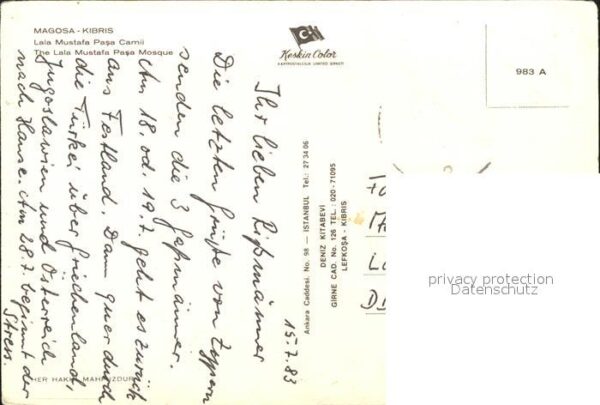 MAGOSA - KIBRIS
Lala Mustafa Paşa Camii
The Lala Mustafa Paşa Mosque
Keskin Color
KARTPOSTALCILIK LIMITED ŞİRKETİ
983 A
15.7.83
Ihr lieben
Die letzten Grüße von Zypern
senden die 3
Am 18. od. 19.7. geht es zurück
aus Festland. Dann quer durch
die Türkei über Griechenland,
Jugoslawien und Österreich
nach Hause. Am 28.7. beginnt der
Stress.
Ankara Caddesi. No. 98 — İSTANBUL Tel.: 27 34 06
DENİZ KİTABEVİ
GİRNE CAD. No. 126 TEL.: 020-71095
LEFKOŞA - KIBRIS
HER HAKKI MAHFUZDUR
privacy protection
Datenschutz